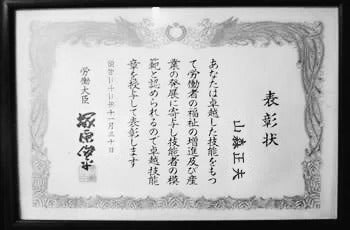 表彰状
山森正夫
あなたは卓越した技能をもつ
て労働者の福祉の増進及び産
業の発展に寄与し技能者の模
範と認められるので卓越技能
章を授与して表彰します
十一月二十日
労働大臣